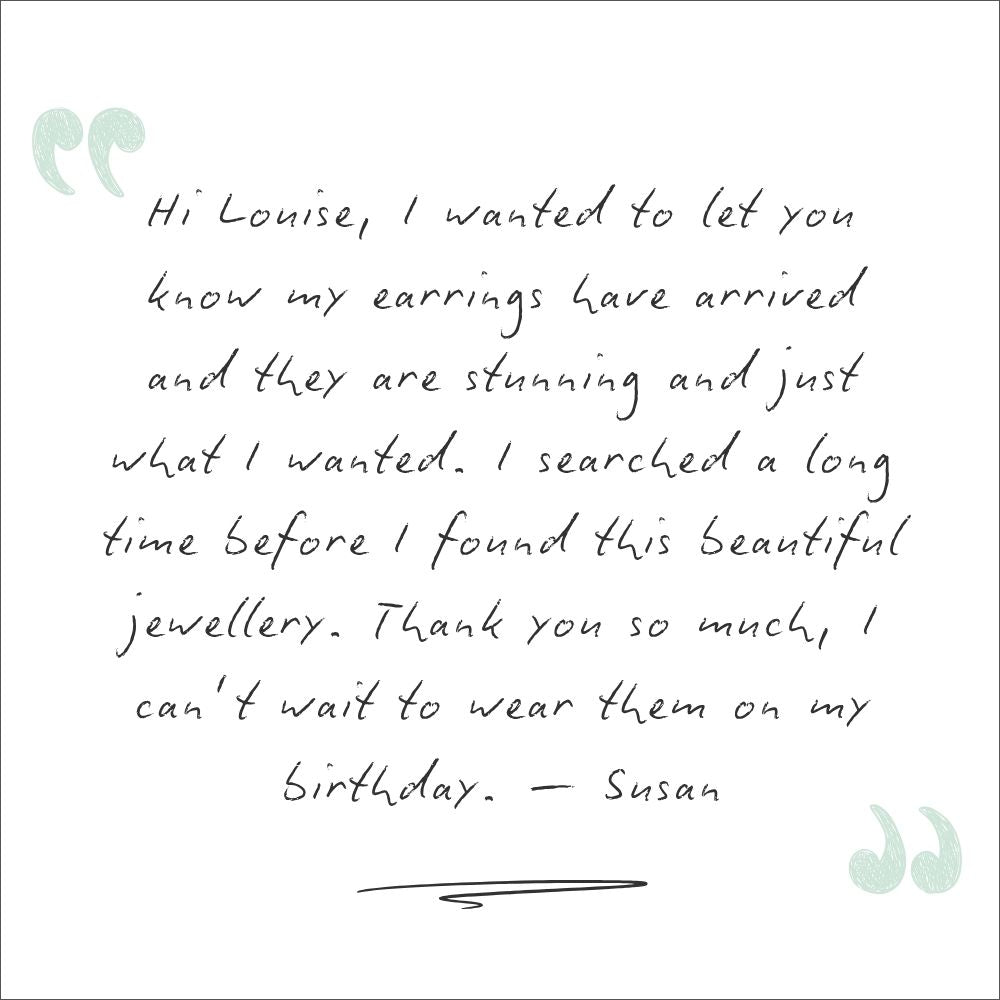 “
Hi Louise, I wanted to let you
know my earrings have arrived
and they are stunning and just
what I wanted. I searched a long
time before I found this beautiful
jewellery. Thank you so much, I
can't wait to wear them on my
birthday. — Susan
”